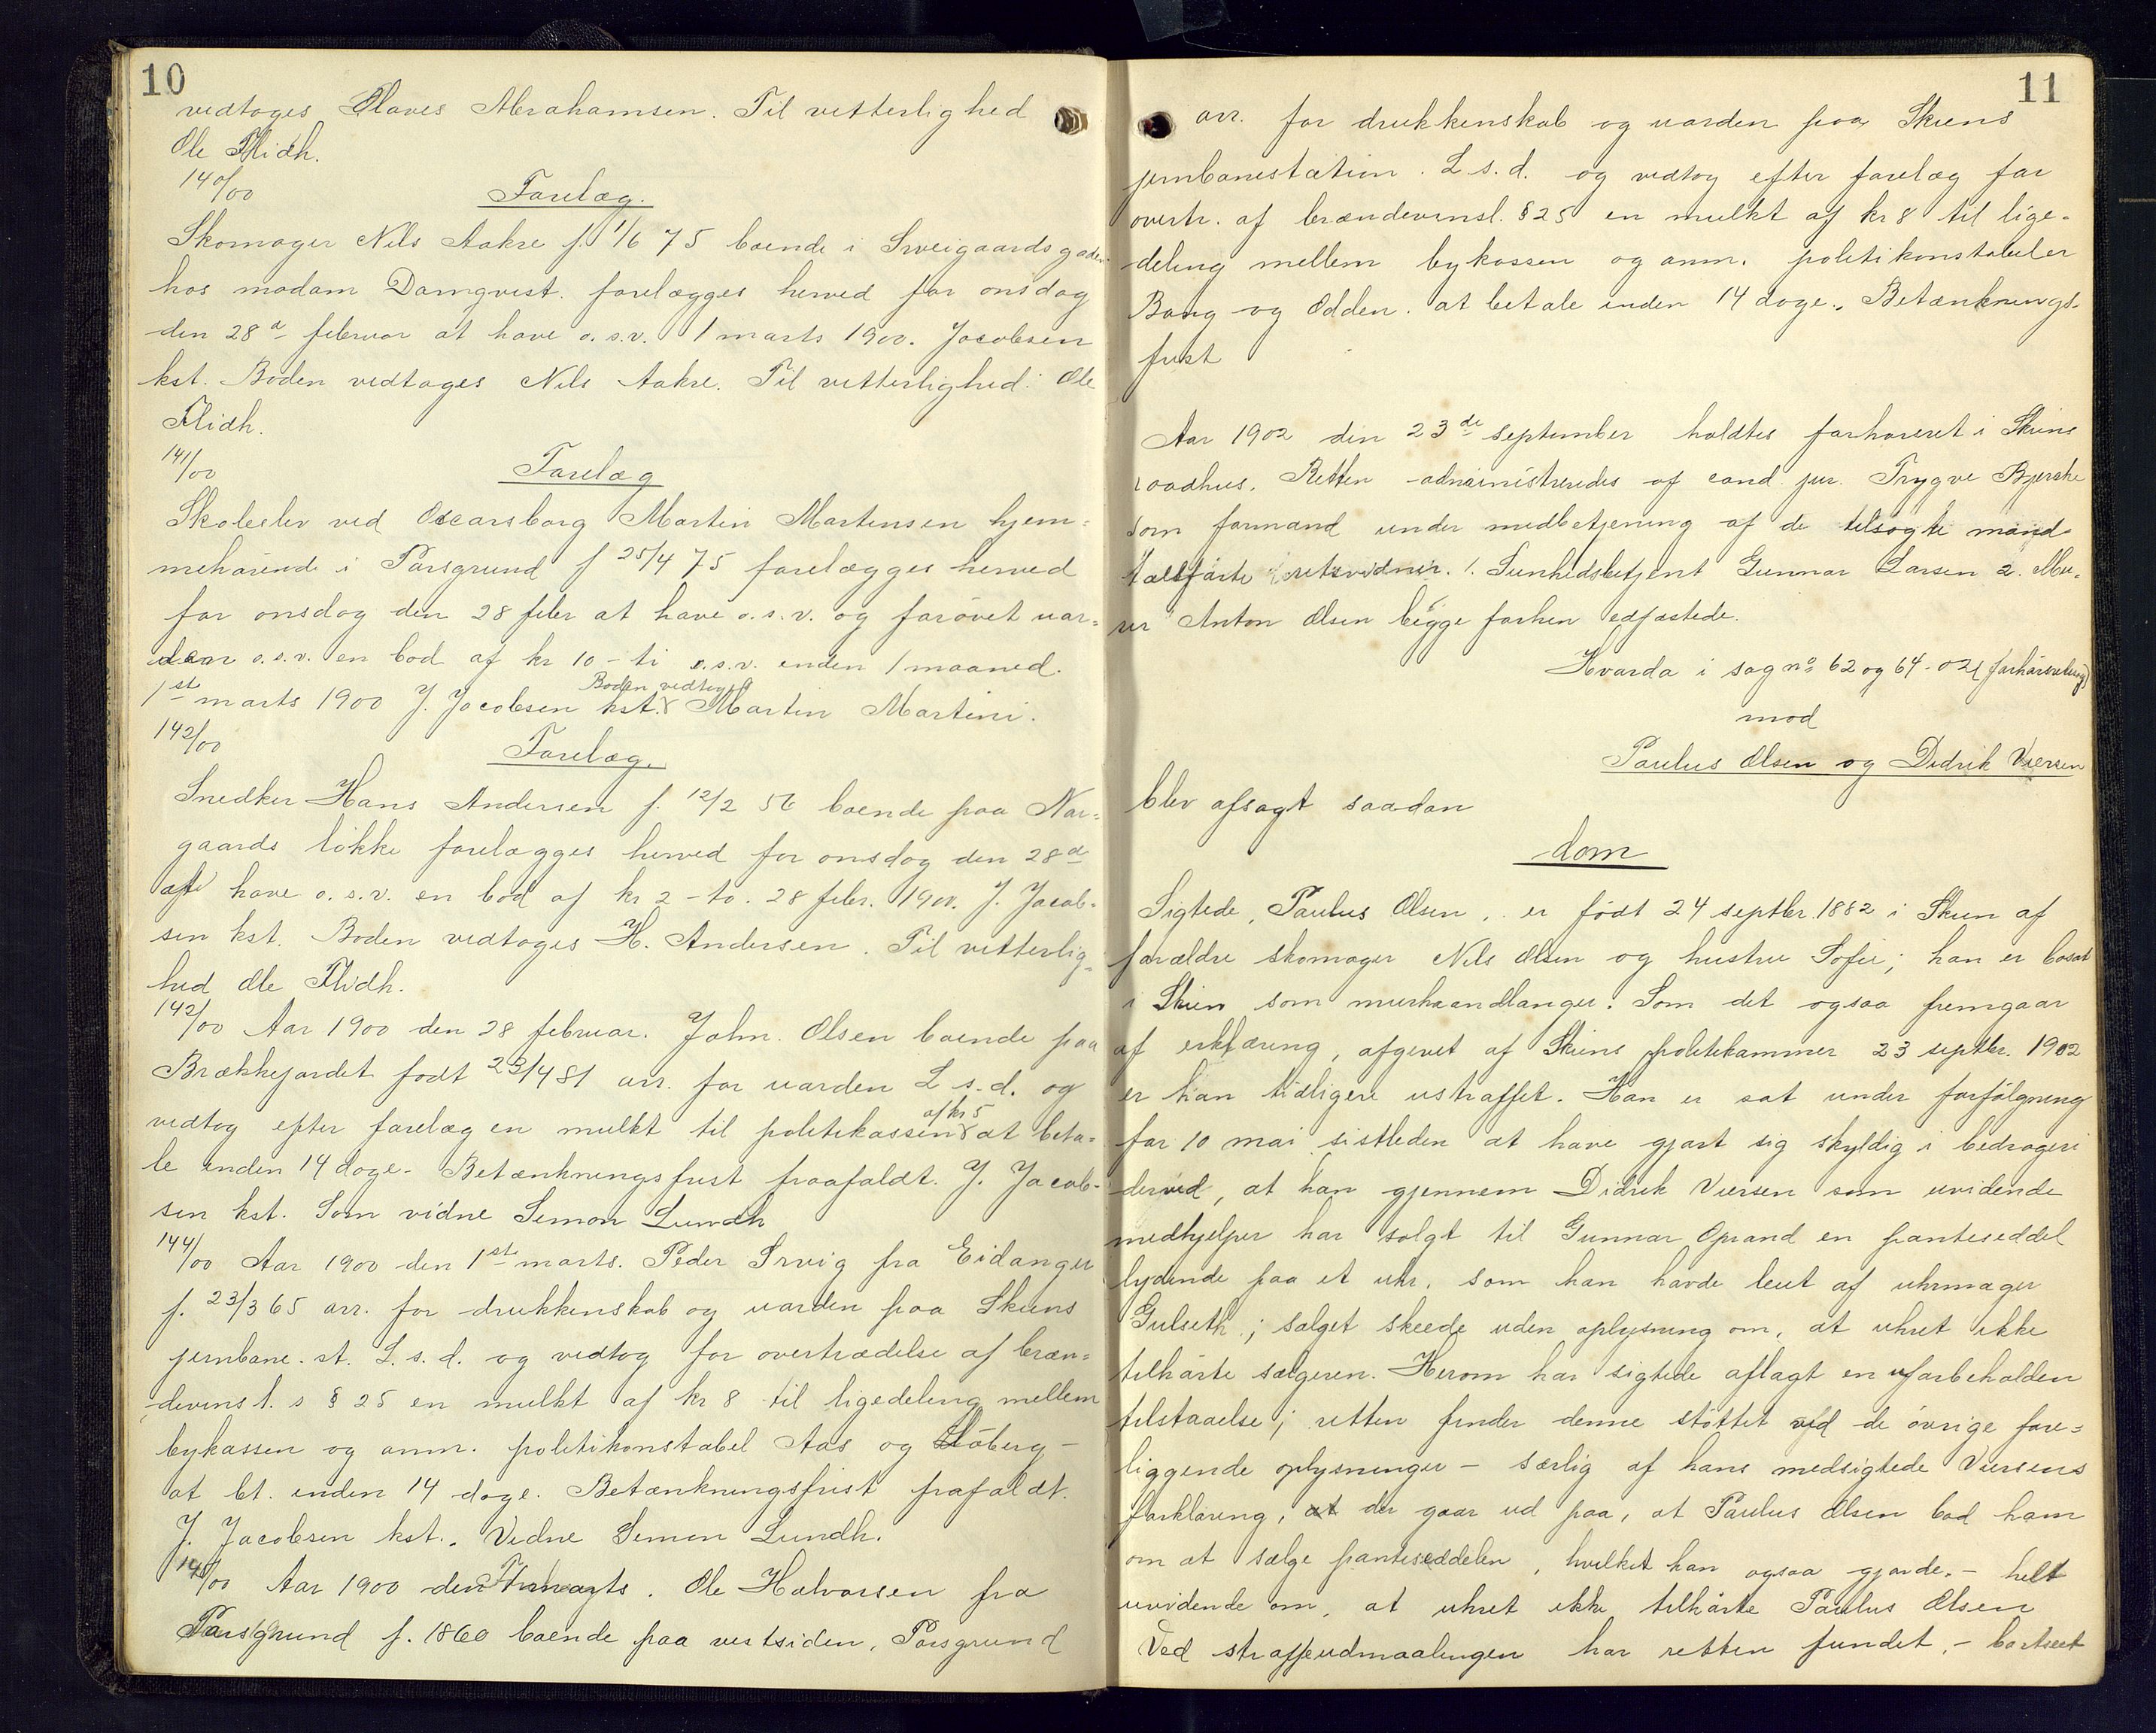 10
vedtages Olaves Abrahamsen. Til vitterlighed
Ole Flidh.
140/00
Forelæg.
Skomager Nils Aakre f. 1/6 75 boende i Sweigaardsgaden
hos madam Damqvist. forelægges herved for onsdag
den 28d februar at have o.s.v. 1 marts 1900. Jacobsen
kst. Boden vedtages Nils Aakre. Til vitterlighed: Ole
Flidh.
141/00
Forelæg
Skoleelev ved Oscarsborg Martin Martinsen hjem=
mehörende i Porsgrund f 25/4 75 forelægges herved
for onsdag den 28 febr at have o.s.v. og forövet uor=
den o.s.v. en bod af kr 10 - ti o.s.v. inden 1 maaned.
1st marts 1900 J. Jacobsen kst. Boden vedtages Martin Martini.
142/00
Forelæg.
Snedker Hans Andersen f. 12/2 56 boende paa Nor=
gaards lökke forelægges herved for onsdag den 28d
at have o.s.v. en bod af kr 2 - to. 28 febr. 1900. J. Jacob=
sen kst. Boden vedtages H. Andersen. Til vitterlig=
hed Ole Flidh.
142/00 Aar 1900 den 28 februar. John. Olsen boende paa
Brækkejordet født 23/4 81 arr. for uorden L s. d. og
vedtog efter forelæg en mulkt til politikassen af kr 5 at beta=
le inden 14 dage. Betænkningsfrist frafaldt. J. Jacob-
sen kst. Som vidne Simon Lundh
144/00 Aar 1900 den 1st marts. Peder Örvig fra Eidanger
f. 23/3 65 arr. for drukkenskab og uorden paa Skiens
jernbane. st. L. s. d. og vedtog for overtrædelse af bræn=
devinsl. s § 25 en mulkt af kr 8 til ligedeling mellem
bykassen og anm. politikonstabel Aas og Sløberg -
at bt. inden 14 dage. Betænkningsfrist frafaldt.
J. Jacobsen kst.. Vidne Simon Lundh.
145/00 Aar 1900 den 1st marts. Ole Halvorsen fra
Porsgrund f. 1860 boende paa vestsiden, Porsgrund
11
arr. for drukkenskab og uorden paa Skiens
jernbanestation. L s. d. og vedtog efter forelæg for
overtr. af brændevinsl. § 25 en mulkt af kr 8 til lige=
deling mellem bykassen og anm. politikonstabeler
Bang og Odden. at betale inden 14 dage. Betænknings-
frist
Aar 1902 den 23de september holdtes forhørsret i Skiens
raadhus. Retten administreredes af cand jur. Trygve Bjerke
som formand under medbetjening af de tilsagte mand
talsførte retsvidner. 1. Sunhedsbetjent Gunnar Larsen 2. Mu=
rer Anton Olsen begge forhen edfæstede.
Hvorda i sag no 62 og 64 - 02 (forhørsretlig)
mod
Paulus Olsen og Didrik Viersen
blev afsagt saadan
dom
Sigtede, Paulus Olsen, er født 24 septbr. 1882 i Skien af
forældre skomager Nils Olsen og hustru Sofie; han er bosat
i Skien som murhaandlanger. Som det ogsaa fremgaar
af erklæring, afgivet af Skiens politikammer 23 septbr. 1902
er han tidligere ustraffet. Han er sat under forfölgning
for 10 mai sistleden at have gjort sig skyldig i bedrageri
derved, at han gjennem Didrik Viersen som uvidende
medhjelper har solgt til Gunnar Oprand en panteseddel
lydende paa et uhr, som han havde leiet af uhrmager
Gulseth; salget skeede uden oplysning om, at uhret ikke
tilhörte sælgeren. Herom har sigtede aflagt en uforbeholden
tilstaaelse; retten finder denne stöttet ved de övrige fore=
liggende oplysninger - særlig af hans medsigtede Viersens
forklaring, der gaar ud paa, at Paulus Olsen bad ham
om at sælge panteseddelen, hvilket han ogsaa gjorde, - helt
uvidende om, at uhret ikke tilhörte Paulus Olsen
Ved straffeudmaalingen har retten fundet, - bortseet